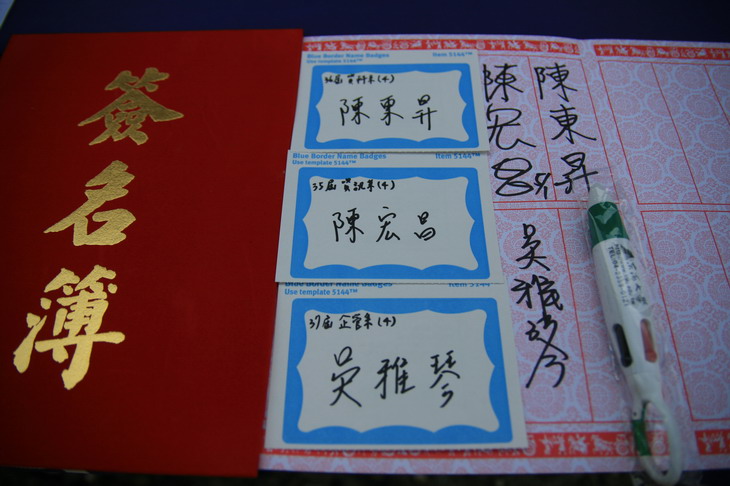 簽名簿
Blue Border Name Badges Item 5144™
Use template 5144™
陳東昇
Blue Border Name Badges Item 5144™
Use template 5144™
35屆資訊系(4)
陳宏昌
Blue Border Name Badges Item 5144
Use template 5144™
37屆企管系(4)
吳雅琴
陳東昇
陳宏昌
吳雅琴